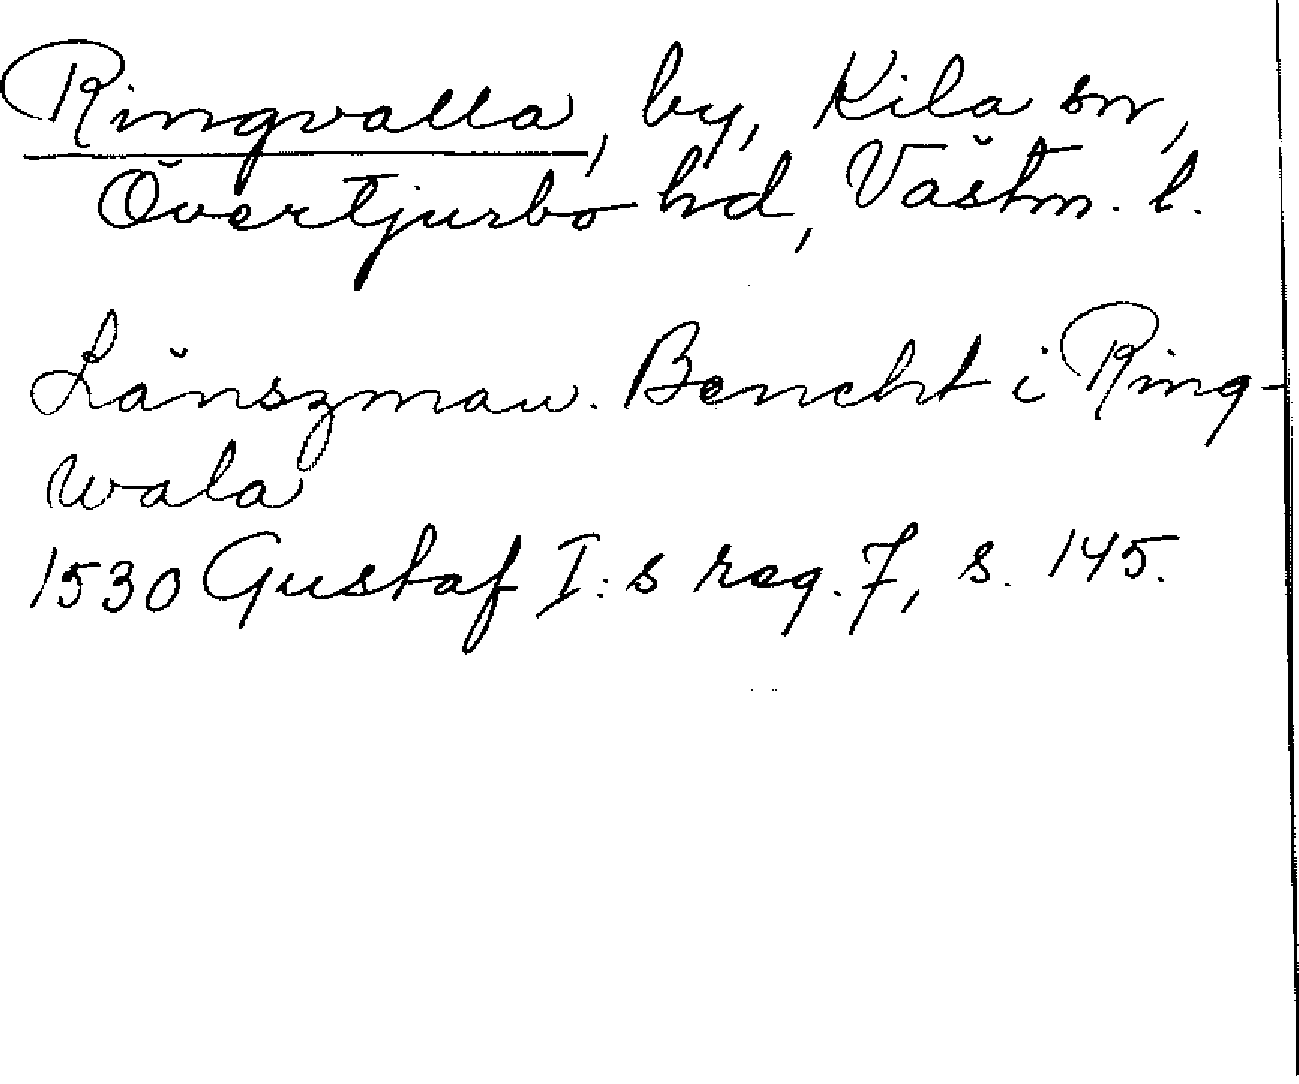 Ringvalla, by, Kila sn,
Övertjurbo hd, Västm. l.
Länszman. Bencht i Ring-
wala
1530 Gustaf I:s reg. 7, s. 145.